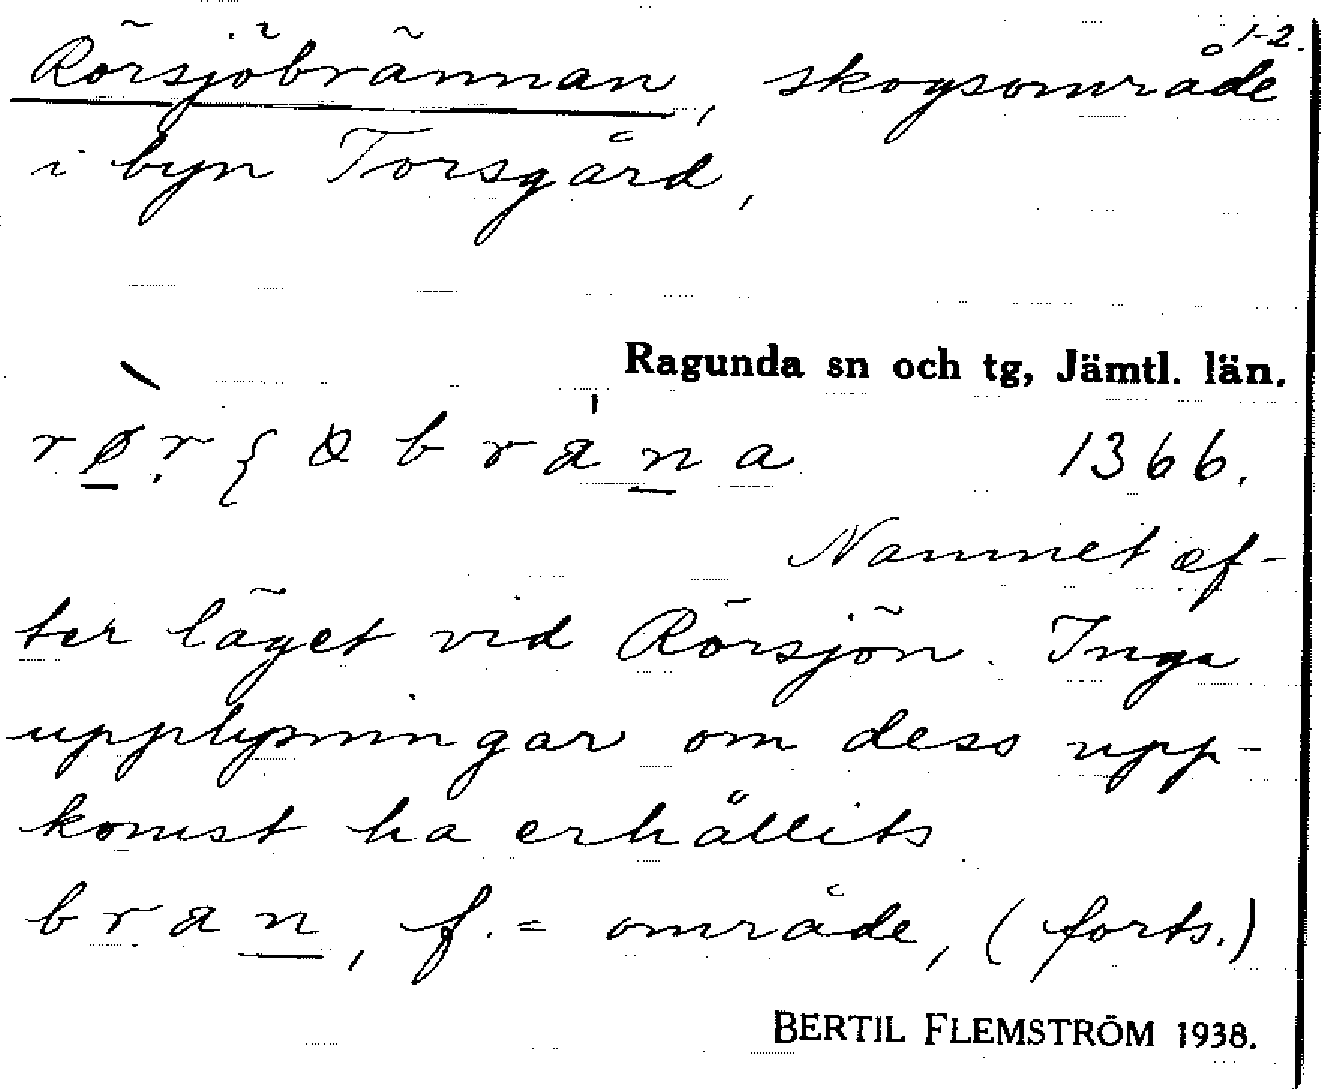 1-2.
Rörsjöbrännan, skogsområde
i byn Torsgård,
Ragunda sn och tg, Jämtl. län.
1366.
Namnet ef-
ter läget vid Rörsjön. Inga
upplysningar om dess upp-
komst ha erhållits
bran, f. = område, (forts.)
BERTIL FLEMSTRÖM 1938.